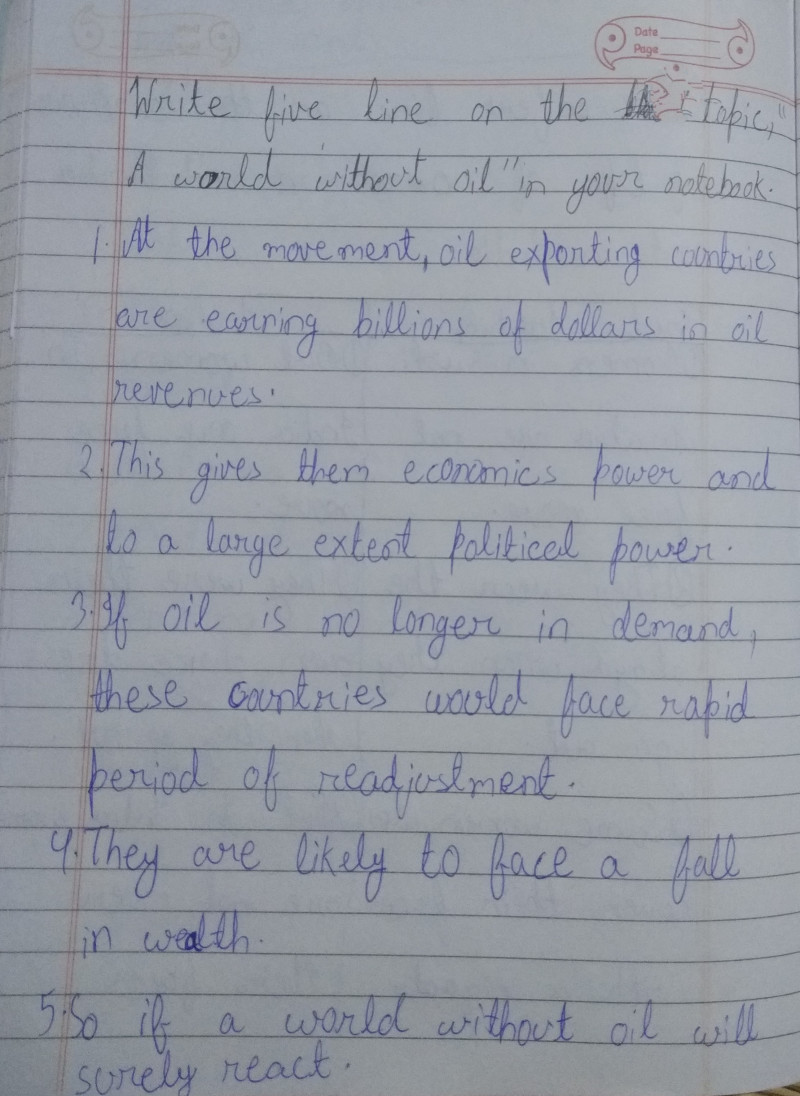 Date
Page
Write five line on the topic,"
A world without oil" in your notebook.
1. At the movement, oil exporting countries
are earning billions of dollars in oil
revenues.
2. This gives them economics power and
to a large extent political power.
3. If oil is no longer in demand,
these countries would face rapid
period of readjustment.
4. They are likely to face a fall
in wealth.
5. So if a world without oil will
surely react.